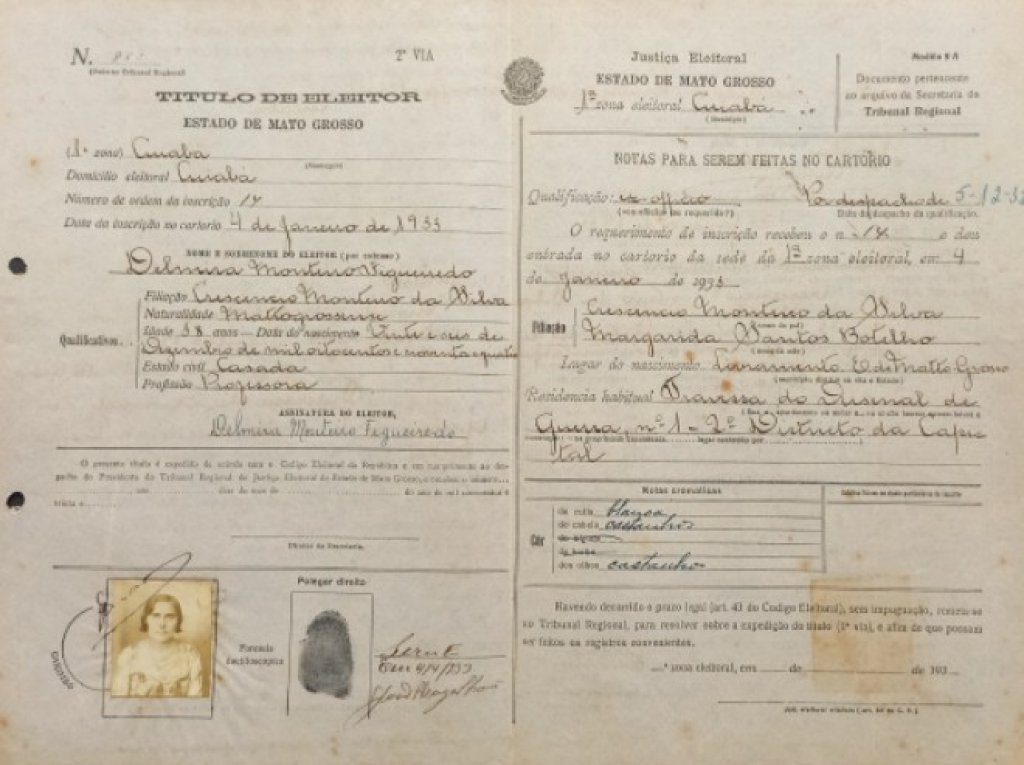 N.
2ª VIA
(Dado no Tribunal Regional)
TITULO DE ELEITOR
ESTADO DE MATO GROSSO
(1ª zona) Cuiabá
(Municipio)
Domicilio eleitoral Cuiabá
Número de ordem da inscrição 14
Data da inscrição no cartorio 4 de Janeiro de 1933
NOME E SOBRENOME DO ELEITOR (por extenso)
Delmira Monteiro Figueiredo
Qualificativos..
Filiação Crescencio Monteiro da Silva
Naturalidade Mattogrossense
Idade 38 anos - Data do nascimento Vinte e seis de
Dezembro de mil oitocentos e noventa e quatro
Estado civil Casada
Profissão Professora
ASSINATURA DO ELEITOR,
Delmira Monteiro Figueiredo
O presente titulo é expedido de acôrdo com o Codigo Eleitoral da Republica e em cumprimento ao des-
pacho do Presidente do Tribunal Regional de Justiça Eleitoral do Estado de Mato Grosso, e recebeu o número
aos dias do mes de do ano de mil novecentos e
trinta e
Diretor da Secretaria.
Polegar direito
Formula
dactiloscopica
Em 4/4/933
Justiça Eleitoral
ESTADO DE MATO GROSSO
1ª zona eleitoral Cuiabá
(Municipio)
Modêlo 9 A
Documento pertencente
ao arquivo da Secretaria do
Tribunal Regional
NOTAS PARA SEREM FEITAS NO CARTORIO
Qualificação: ex-officio Por despacho de 5-12-32
(ex-oficio ou requerida?) Data do despacho da qualificação.
O requerimento de inscrição recebeu o n. 14 e deu
entrada no cartorio da sede da 1ª zona eleitoral, em 4
de Janeiro de 1933
Filiação
Crescencio Monteiro da Silva
(nome do pai)
Margarida Santos Botelho
(nome da mãe)
Lugar do nascimento Livramento E. de Matto Grosso
Residencia habitual Travessa do Arsenal de
Guerra, nº 1 - 2º Districto da Capi-
tal
Notas cromaticas
Côr
da cutis blanca
do cabelo castanhos
do bigode
da barba
dos olhos castanho
Havendo decorrido o prazo legal (art. 43 do Codigo Eleitoral), sem impugnação, remeta-se
ao Tribunal Regional, para resolver sobre a expedição do titulo (1ª via), e afim de que possam
ser feitos os registros convenientes.
ª zona eleitoral, em de de 193